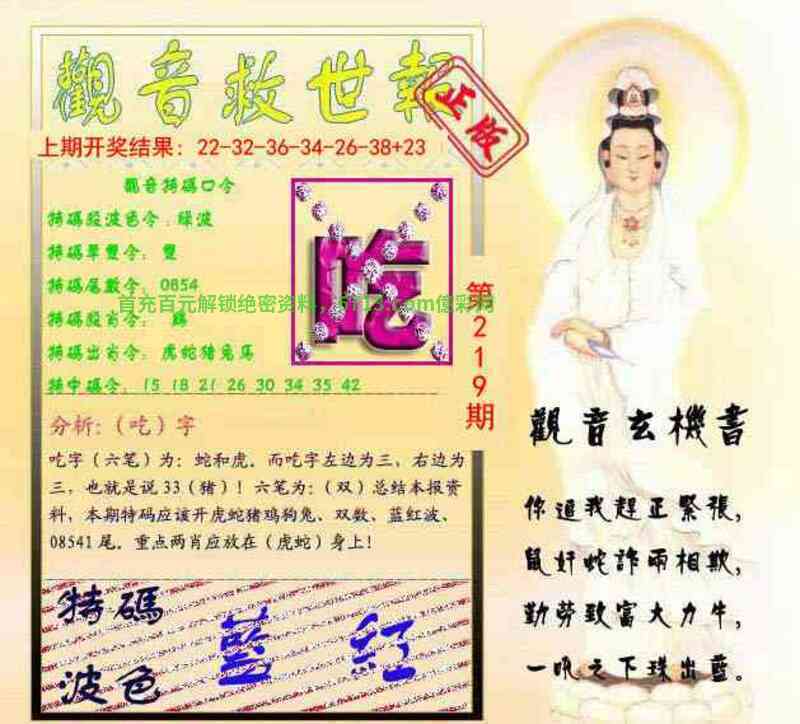 觀音救世報
正版
上期开奖结果：22-32-36-34-26-38+23
觀音特碼口令
特碼殺波色令：绿波
特碼單雙令：雙
特碼尾數令：0854
首充百元解锁绝密资料，
.com億彩网
特碼殺肖令：
特碼出肖令：虎蛇猪兔馬
特中碼令：15 18 21 26 30 34 35 42
吃
第219期
分析:（吃）字
吃字（六笔）为：蛇和虎．而吃字左边为三，右边为
三，也就是说33（猪）！六笔为：（双）总结本报资
料，本期特码应该开虎蛇猪鸡狗兔、双数、蓝红波、
08541尾．重点两肖应放在（虎蛇）身上！
特碼
波色
藍 紅
觀音玄機書
你追我趕正緊張，
鼠奸蛇詐兩相欺，
勤勞致富大力牛，
一吼之下珠出藍。